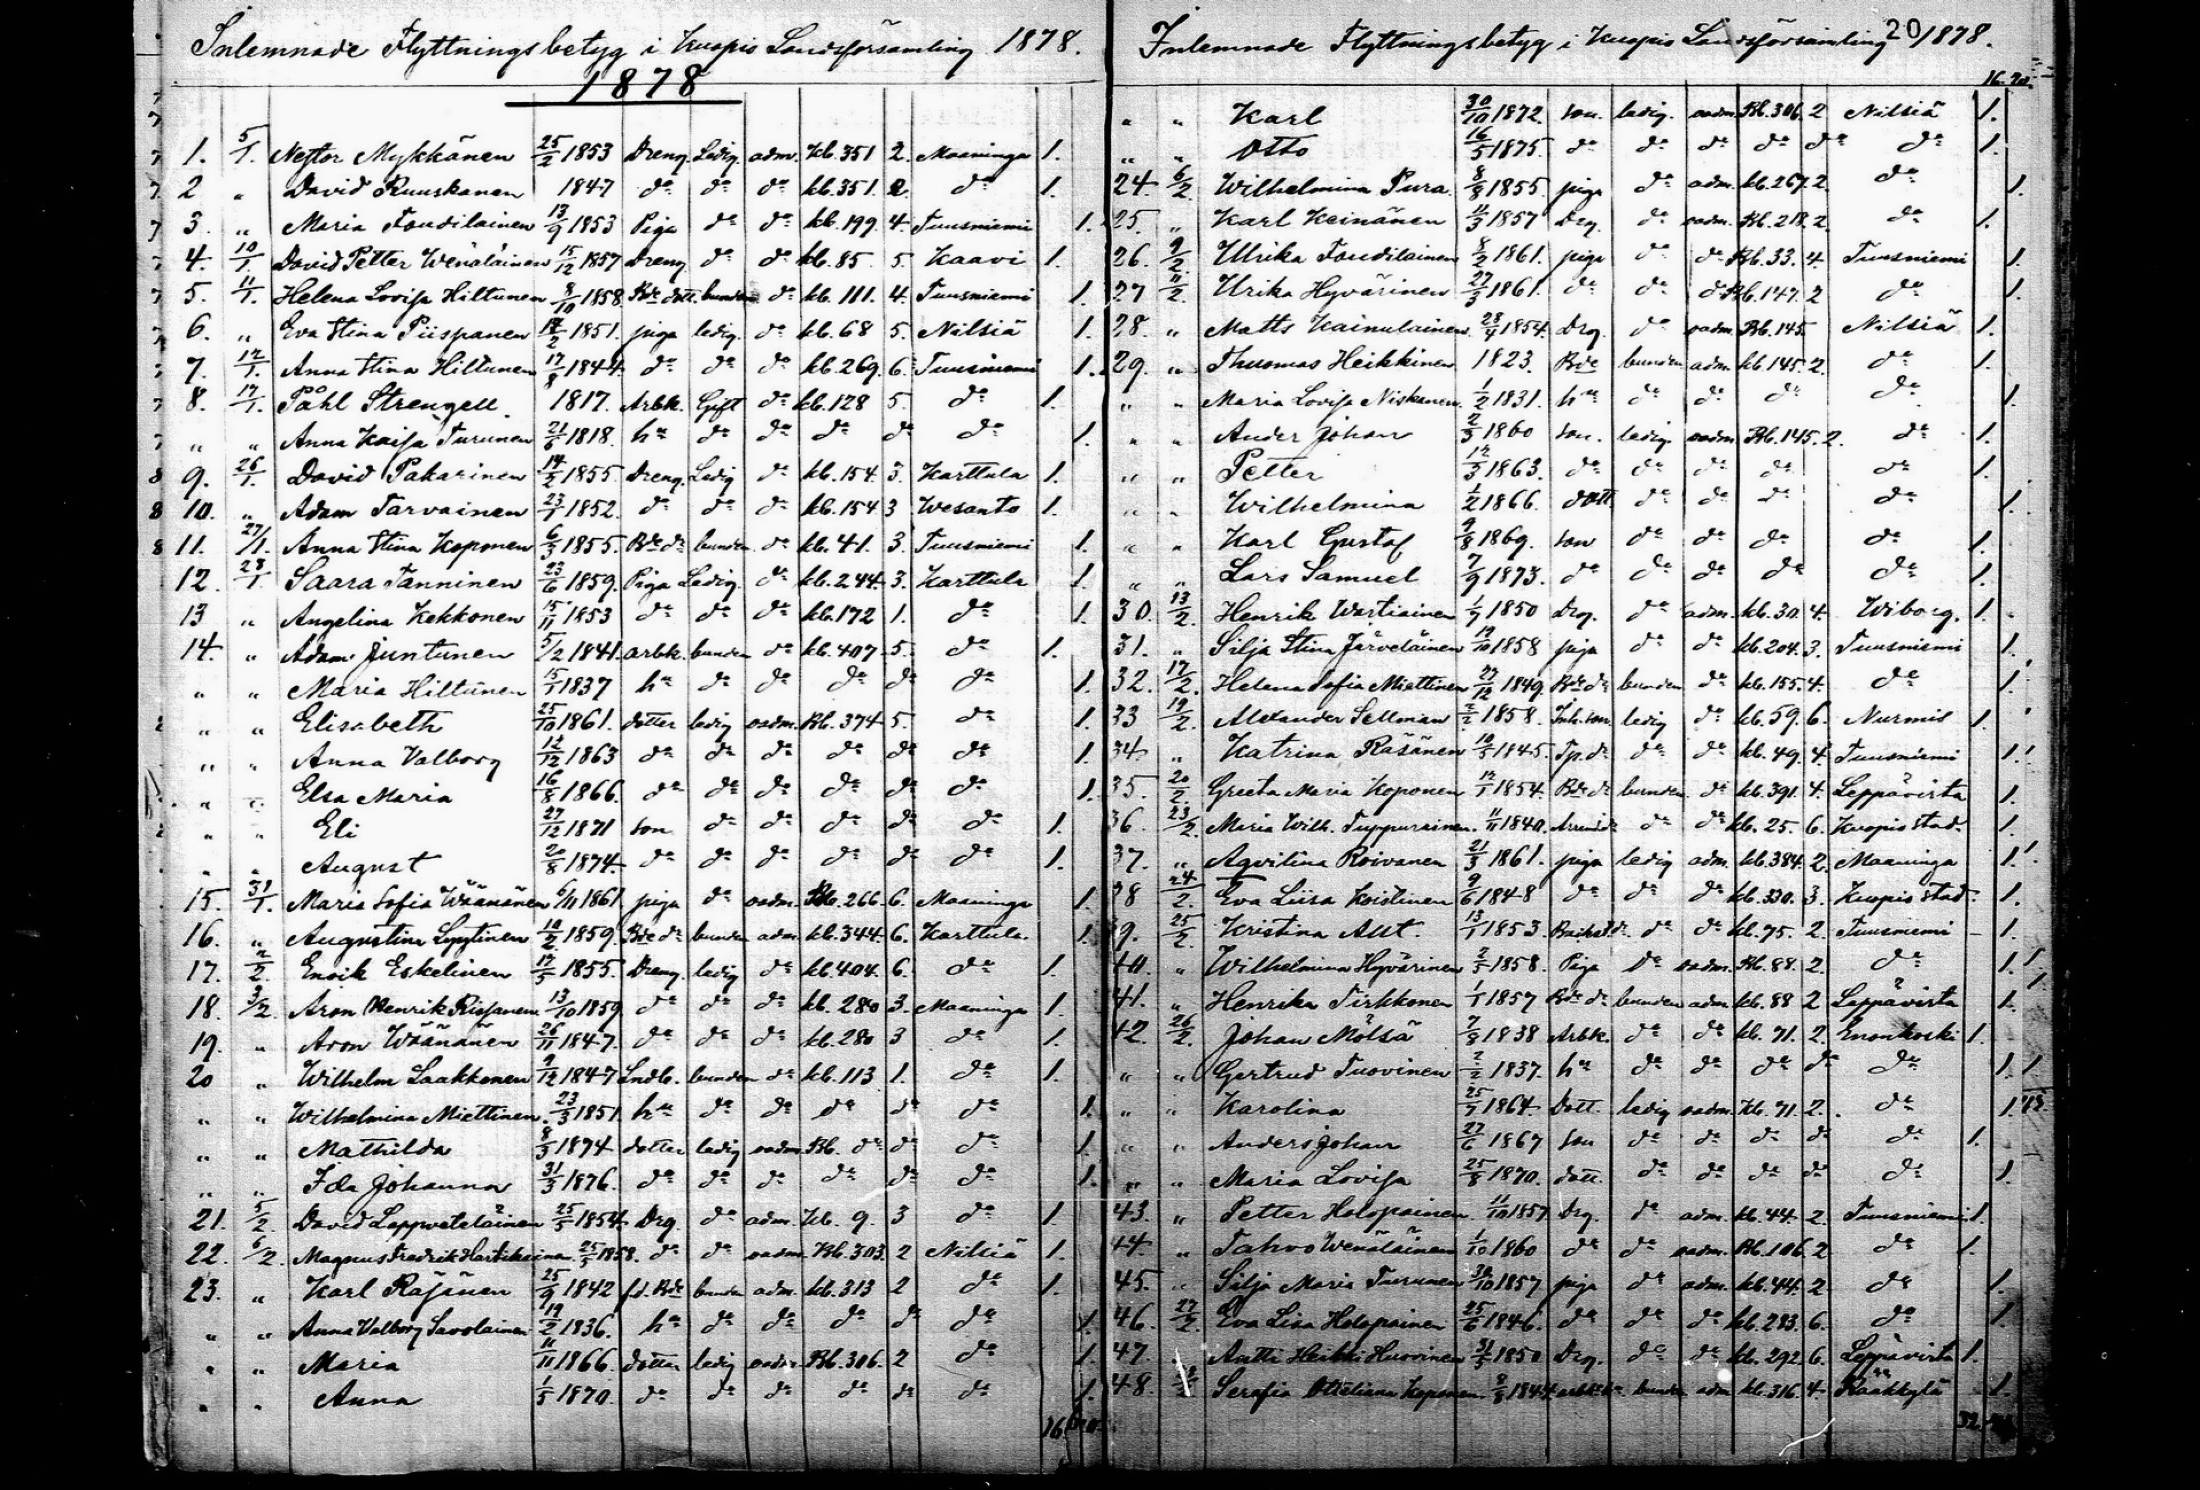 Inlemnade Flyttningsbetyg i Kuopio Landsförsamling 1878.
1878
1. 5/1. Nestor Mykkänen 25/2 1853 Dreng. Ledig. adm. kb. 351 2. Maaninga 1.
2 " David Ruuskanen 1847 do do do kb. 351. 2. do 1.
3. " Maria Tondilainen 13/9 1853 Piga do do kb. 199. 4. Tuusniemi 1.
4. 10/1. David Petter Wenäläinen 15/12 1857 Dreng do do kb. 85. 5. Kaavi 1.
5. 11/1. Helena Lovisa Hiltunen 8/10 1858 Bde dott. bunden do kb. 111. 4. Tuusniemi 1.
6. " Eva Stina Piispanen /2 1851. piga ledig. do kb. 68 5. Nilsiä 1.
7. 12/1. Anna Stina Hiltunen 17/8 1844. do do do kb. 269. 6. Tuusniemi 1.
8. 17/1. Påhl Strengell. 1817. Arbk. Gift do kb. 128 5. do 1.
" " Anna Kaisa Turunen 21/6 1818. hu do do do do do 1.
9. 26/1. David Pakarinen 14/2 1855. Dreng. Ledig do kb. 154. 3. Karttula 1.
10. " Adam Tarvainen 23/1 1852. do do do kb. 154 3 Wesanto 1.
11. 27/1. Anna Stina Koponen 6/3 1855. Bde do bunden. do kb. 41. 3. Tuusniemi 1.
12. 28/1 Saara Tanninen 23/6 1859. Piga Ledig. do kb. 244. 3. Karttula 1.
13 " Angelina Kekkonen 15/11 1853 do do do kb. 172 1. do 1.
14. " Adam Juntunen 5/2 1841. arbk. bunden do kb. 407. 5. do 1.
" " Maria Hiltunen 15/1 1837 hu do do do do do 1.
" " Elisabeth 25/10 1861. dotter ledig oadm. Bb. 374 5. do 1.
" " Anna Valborg 12/12 1863 do do do do do do 1.
" " Elsa Maria 16/8 1866. do do do do do do 1.
" " Eli 27/12 1871 son do do do do do 1.
" " August 20/8 1874. do do do do do do 1.
15. 31/1. Maria Sofia Wäänänen 6/11 1861. piga do oadm. Bb. 266. 6. Maaninga 1.
16. " Augustina Lyytinen 10/2 1859. Bde do bunden adm. kb. 344. 6. Karttula. 1.
17. 2/2. Enrik Eskelinen 17/5 1855. Dreng. ledig do kb. 404. 6. do 1.
18. 3/2. Aron Henrik Rissanen 13/10 1859 do do do kb. 280 3. Maaninga 1.
19. " Aron Wäänänen 26/11 1847. do do do kb. 280 3 do 1.
20 " Wilhelm Laakkonen 9/12 1847 Lndb. bunden do kb. 113 1. do 1.
" " Wilhelmina Miettinen. 23/3 1851. hu do do do do do 1.
" " Mathilda 8/3 1874 dotter ledig oadm. Bb. do do do 1.
" " Ida Johanna 31/3 1876. do do do do do do 1.
21. 5/2. David Leppweteläinen 25/5 1854 Drg. do adm. kb. 9. 3 do 1.
22. 6/2. Magnus Fredrik Hartikainen 25/5 1858. do do oadm. Bb. 303. 2 Nilsiä 1.
23. " Karl Räsänen 25/9 1842 f.d. Bde bunden adm. kb. 313 2 do 1.
" " Anna Valborg Savolainen 19/2 1836. hu do do do do do 1.
" " Maria 11/11 1866. dotter ledig oadm. Bb. 306. 2 do 1.
" " Anna 1/5 1870. do do do do do do 1.
16. 20.
Inlemnade Flyttningsbetyg i Kuopio Landsförsamling 1878.
20
16. 20.
" " Karl 30/10 1872. son. ledig. oadm. Bb. 306. 2 Nilsiä 1.
" " Otto 16/5 1875. do do do do do do 1.
24 6/2 Wilhelmina Pura. 8/8 1855. piga do adm. kb. 267. 2. do 1.
25. " Karl Keinänen 11/3 1857 Drg. do oadm. Bb. 218. 2. do 1.
26. 9/2. Ulrika Tondilainen 8/2 1861. piga do do Bb. 33. 4. Tuusniemi 1.
27 11/2. Ulrika Hyvärinen 27/3 1861. do do do Bb. 147. 2 do 1.
28. " Matts Kainulainen 28/4 1854. Drg. do oadm. Bb. 145. Nilsiä 1.
29. " Thuomas Heikkinen 1823. Bde bunden adm. kb. 145. 2. do 1.
" " Maria Lovisa Niskanen. 1/2 1831. hu do do do do 1.
" " Ander Johan 2/3 1860 son. ledig. oadm Bb. 145. 2. do 1.
" " Petter 12/3 1863. do do do do do 1.
" " Wilhelmina 1/2 1866. dott. do do do do 1.
" " Karl Gustaf 9/8 1869. son do do do do 1.
" " Lars Samuel 7/9 1873. do do do do do 1.
30. 13/2. Henrik Wartiainen 1/9 1850 Drg. do adm. kb. 30. 4. Wiborg. 1.
31. " Silja Stina Järveläinen 19/10 1858 piga do do kb. 204. 3. Tuusniemi 1.
32. 17/2. Helena Sofia Miettinen 27/12 1849. Bde do bunden do kb. 155. 4. do 1.
33 19/2. Alexander Sellman 2/2 1858. Inh. son. ledig do kb. 59. 6. Nurmis 1.
34 " Katrina Räsänen 10/5 1845. Tp. do do do kb. 49. 4. Tuusniemi 1.
35. 20/2. Greeta Maria Koponen 12/1 1854. Bde do bunden. do kb. 391. 4. Leppävirta 1.
36. 23/2. Maria Wilh. Tuppurainen. 11/11 1840. do do kb. 25. 6. Kuopio stad. 1.
37. " Aqvilina Roivanen 21/3 1861. piga ledig adm. kb. 384. 2. Maaninga 1.
38 24/2. Eva Liisa Koistinen 9/6 1848 do do do kb. 330. 3. Kuopio stad. 1.
39. 25/2. Kristina Allt. 13/1 1853. do do kb. 75. 2. Tuusniemi 1.
40. " Wilhelmina Hyvärinen 2/5 1858. Piga do oadm. Bb. 88. 2. do 1.
41. " Henrika Tirkkonen 1/1 1857 Bde do bunden adm. kb. 88 2 Leppävirta 1.
42. 26/2. Johan Mölsä 7/8 1838 Arbk. do do kb. 71. 2. Enonkoski 1.
" " Gertrud Tuovinen 2/2 1837. hu do do do do do 1.
" " Karolina 25/7 1864. Dott. ledig oadm. kb. 71. 2. do 1.
" " Anders Johan 27/6 1867 son do do do do do 1.
" " Maria Lovisa 25/8 1870. dott. do do do do do 1.
43. " Petter Holopainen. 11/10 1857 Drg. do adm. kb. 44. 2. Tuusniemi 1.
44. " Tahvo Wenäläinen 1/10 1860 do do oadm. Bb. 106. 2 do 1.
45. " Silja Maria Turunen 30/10 1857 piga do adm. kb. 44. 2. do 1.
46. 27/2. Eva Lisa Holopainen 25/6 1846. do do do kb. 283. 6. do 1.
47. Antti Heikki Huovinen 31/5 1850 Drg. do do kb. 292. 6. Leppävirta 1.
48. Serafia Ottiliana Koponen. 8/8 1844 bunden adm. kb. 316. 4. Rääkkylä 1.
32.